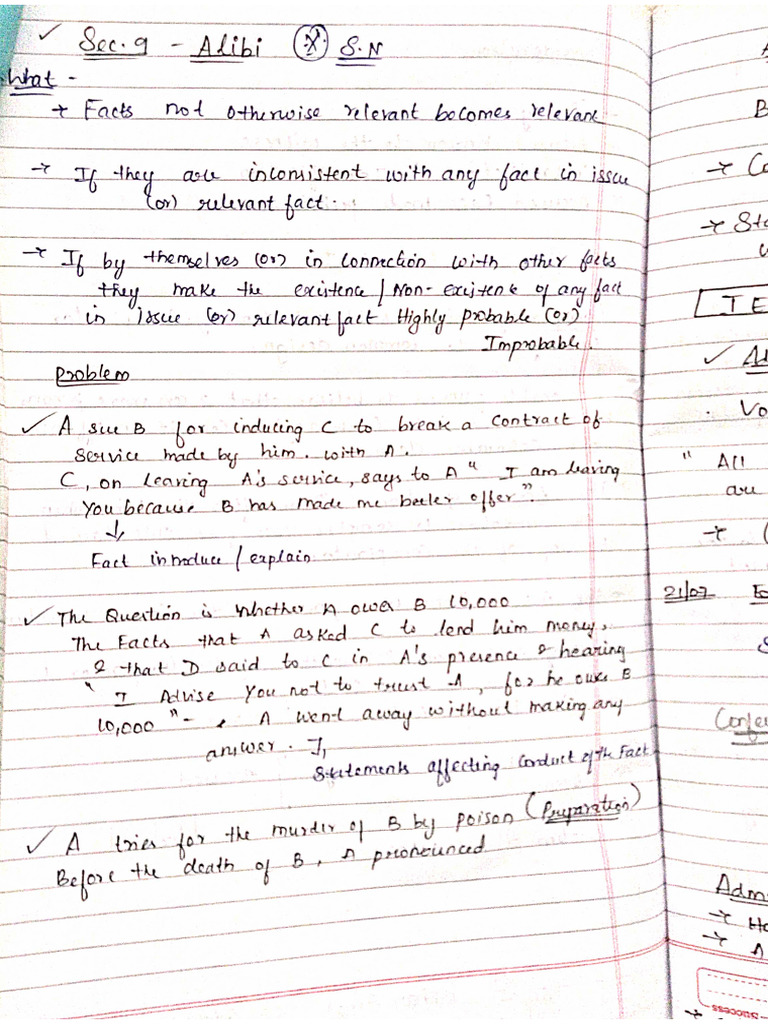 ✓ Sec. 9 - Alibi (X) S.N
What -
→ Facts not otherwise relevant becomes relevant
→ If they are inconsistent with any fact in issue
(or) relevant fact.
→ If by themselves (or) in connection with other facts
they make the existence / Non-existence of any fact
in issue (or) relevant fact Highly probable (or)
Improbable.
Problem
✓ A sue B for inducing C to break a contract of
service made by him. with A.
C, on leaving A's service, says to A " I am leaving
You because B has made me better offer".
↓
Fact introduce / explain
✓ The Question is whether A owes B 10,000
The Facts that A asked C to lend him money,
& that D said to C in A's presence & hearing
" I Advise You not to trust A, for he owes B
10,000 " - A went away without making any
answer.
Statements affecting conduct of the Fact
✓ A tries for the murder of B by poison (Preparation)
Before the death of B, A pronounced
B
→
→
✓
Vo
" All
are
→
21/07
→
→ A
Success